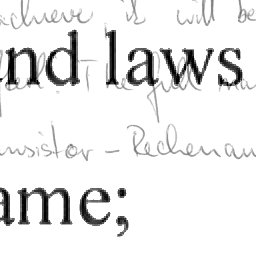 achieve it will be
and laws
ansistor – Rechenau
ame;